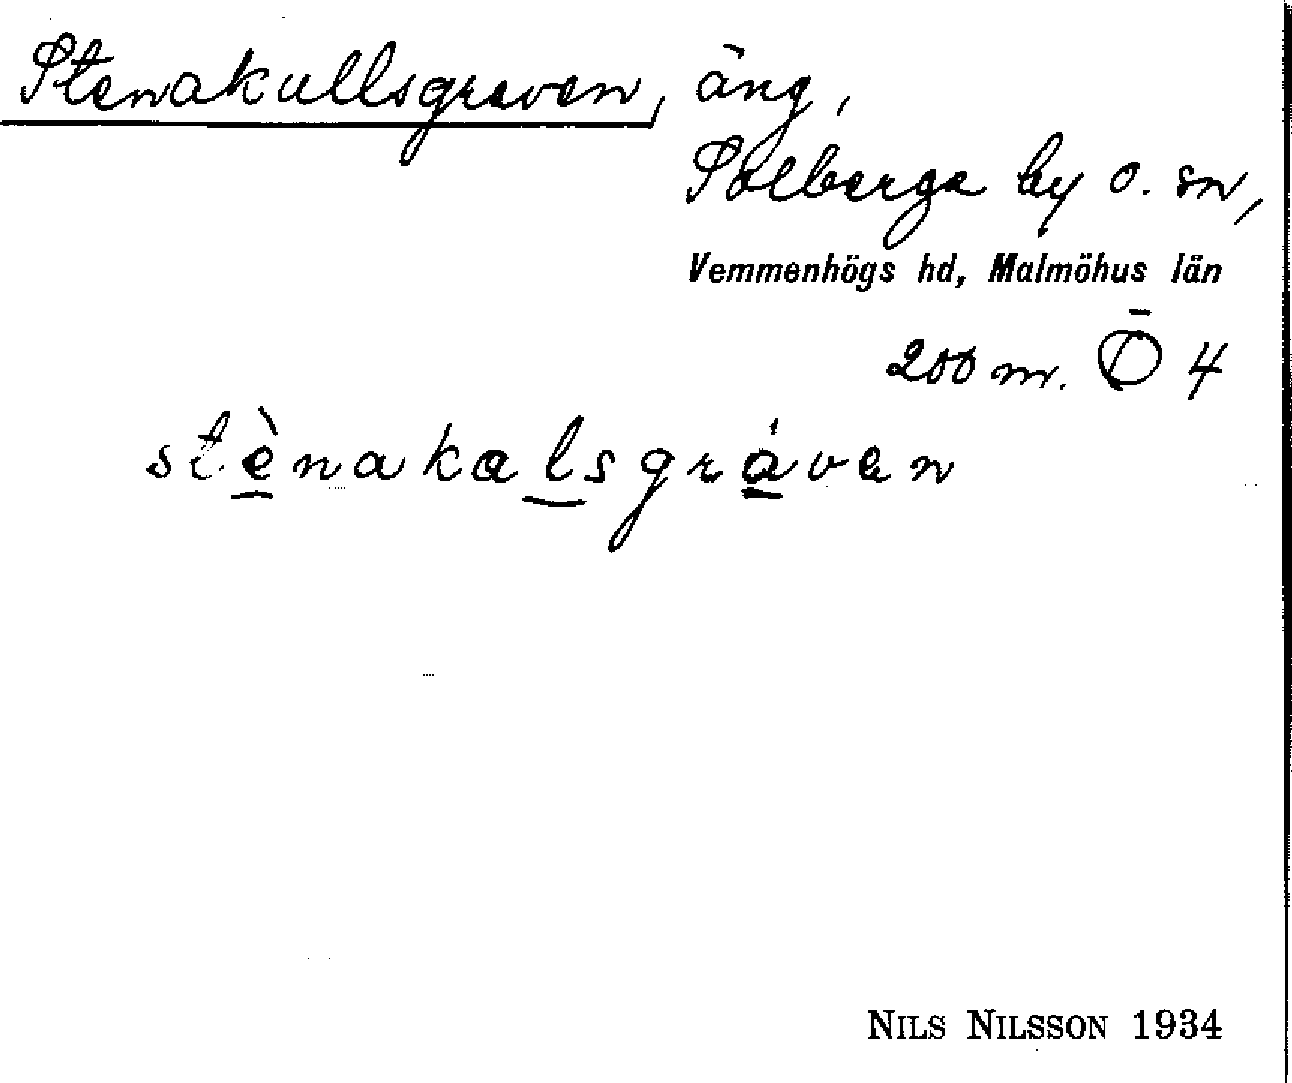 Stenakullsgraven, äng,
Solberga by o. sn,
Vemmenhögs hd, Malmöhus län
200 m. Ö 4
stènakalsgráven
NILS NILSSON 1934